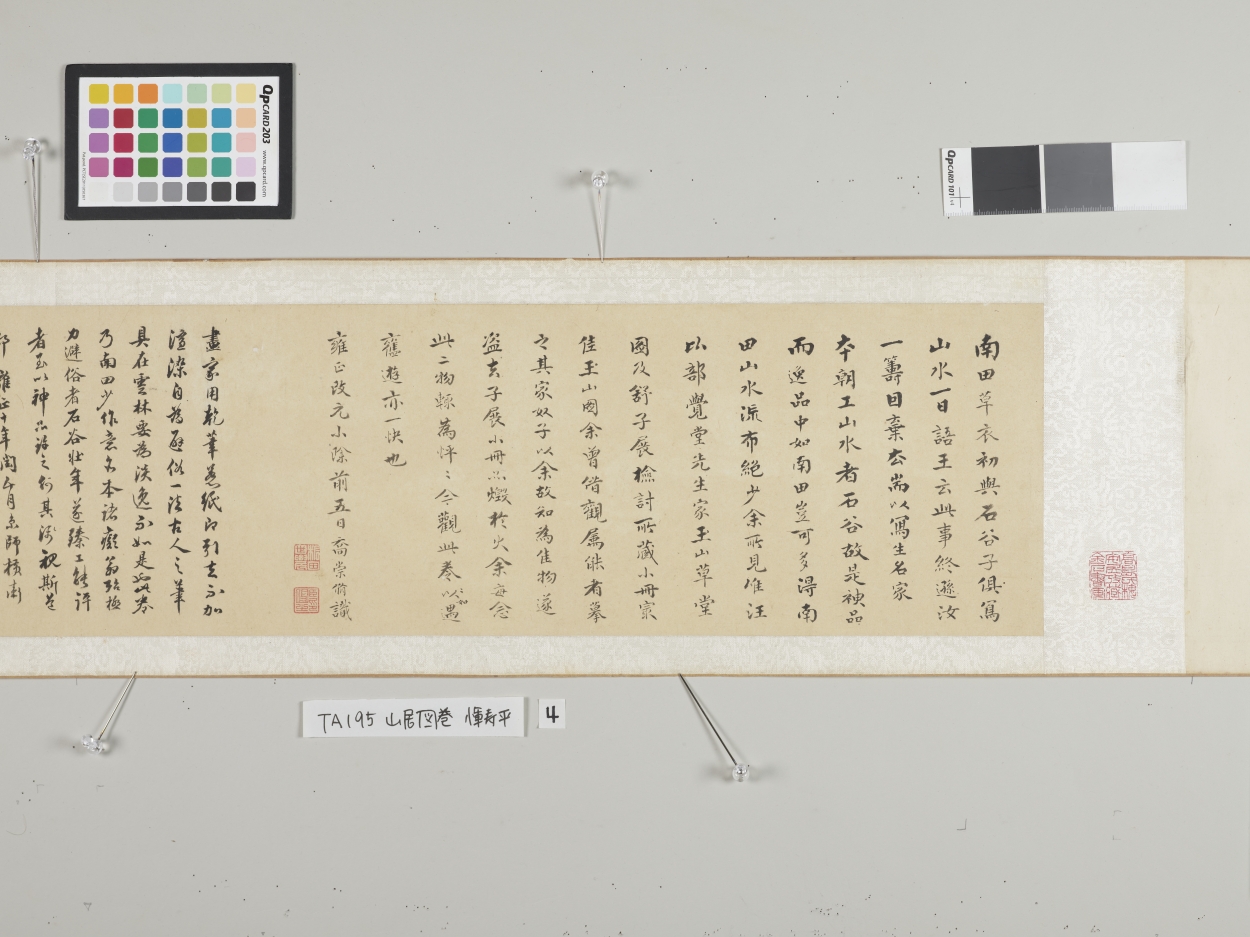 QpCARD 203
www.qpcard.com
QpCARD 101 v4
南田草衣初與石谷子俱寫
山水一日語王云此事終遜汝
一籌因棄去耑以寫生名家
本朝工山水者石谷故是神品
而逸品中如南田豈可多得南
田山水流布絕少余所見惟汪
比部覺堂先生家玉山草堂
圖及舒子展檢討所藏小冊寂
佳玉山圖余曾借觀屬能者摹
之其家奴子以余故知為佳物遂
盜去子展小冊亦燬於火余每念
此二物輒為怦〻今觀此卷以遇
舊遊亦一快也
雍正改元小除前五日喬崇脩識
畫家用乾筆惹紙即引去不加
渲染自為避俗一法古人之筆
具在雲林要為淡逸不如是此卷
乃南田少作意本諸癡翁殆極
力避俗者石谷壯年遂臻工能評
者至以神品
TA195 山居図巻 惲寿平
4